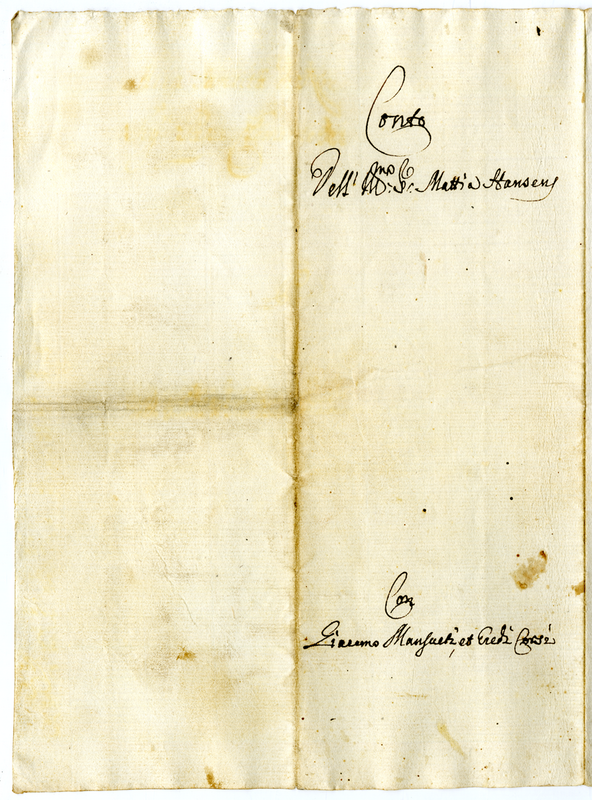 Conto
Dell' Ill.mo S.r Mattia Hansen
Con
Giacomo Mansueti, et Eredi Corsi